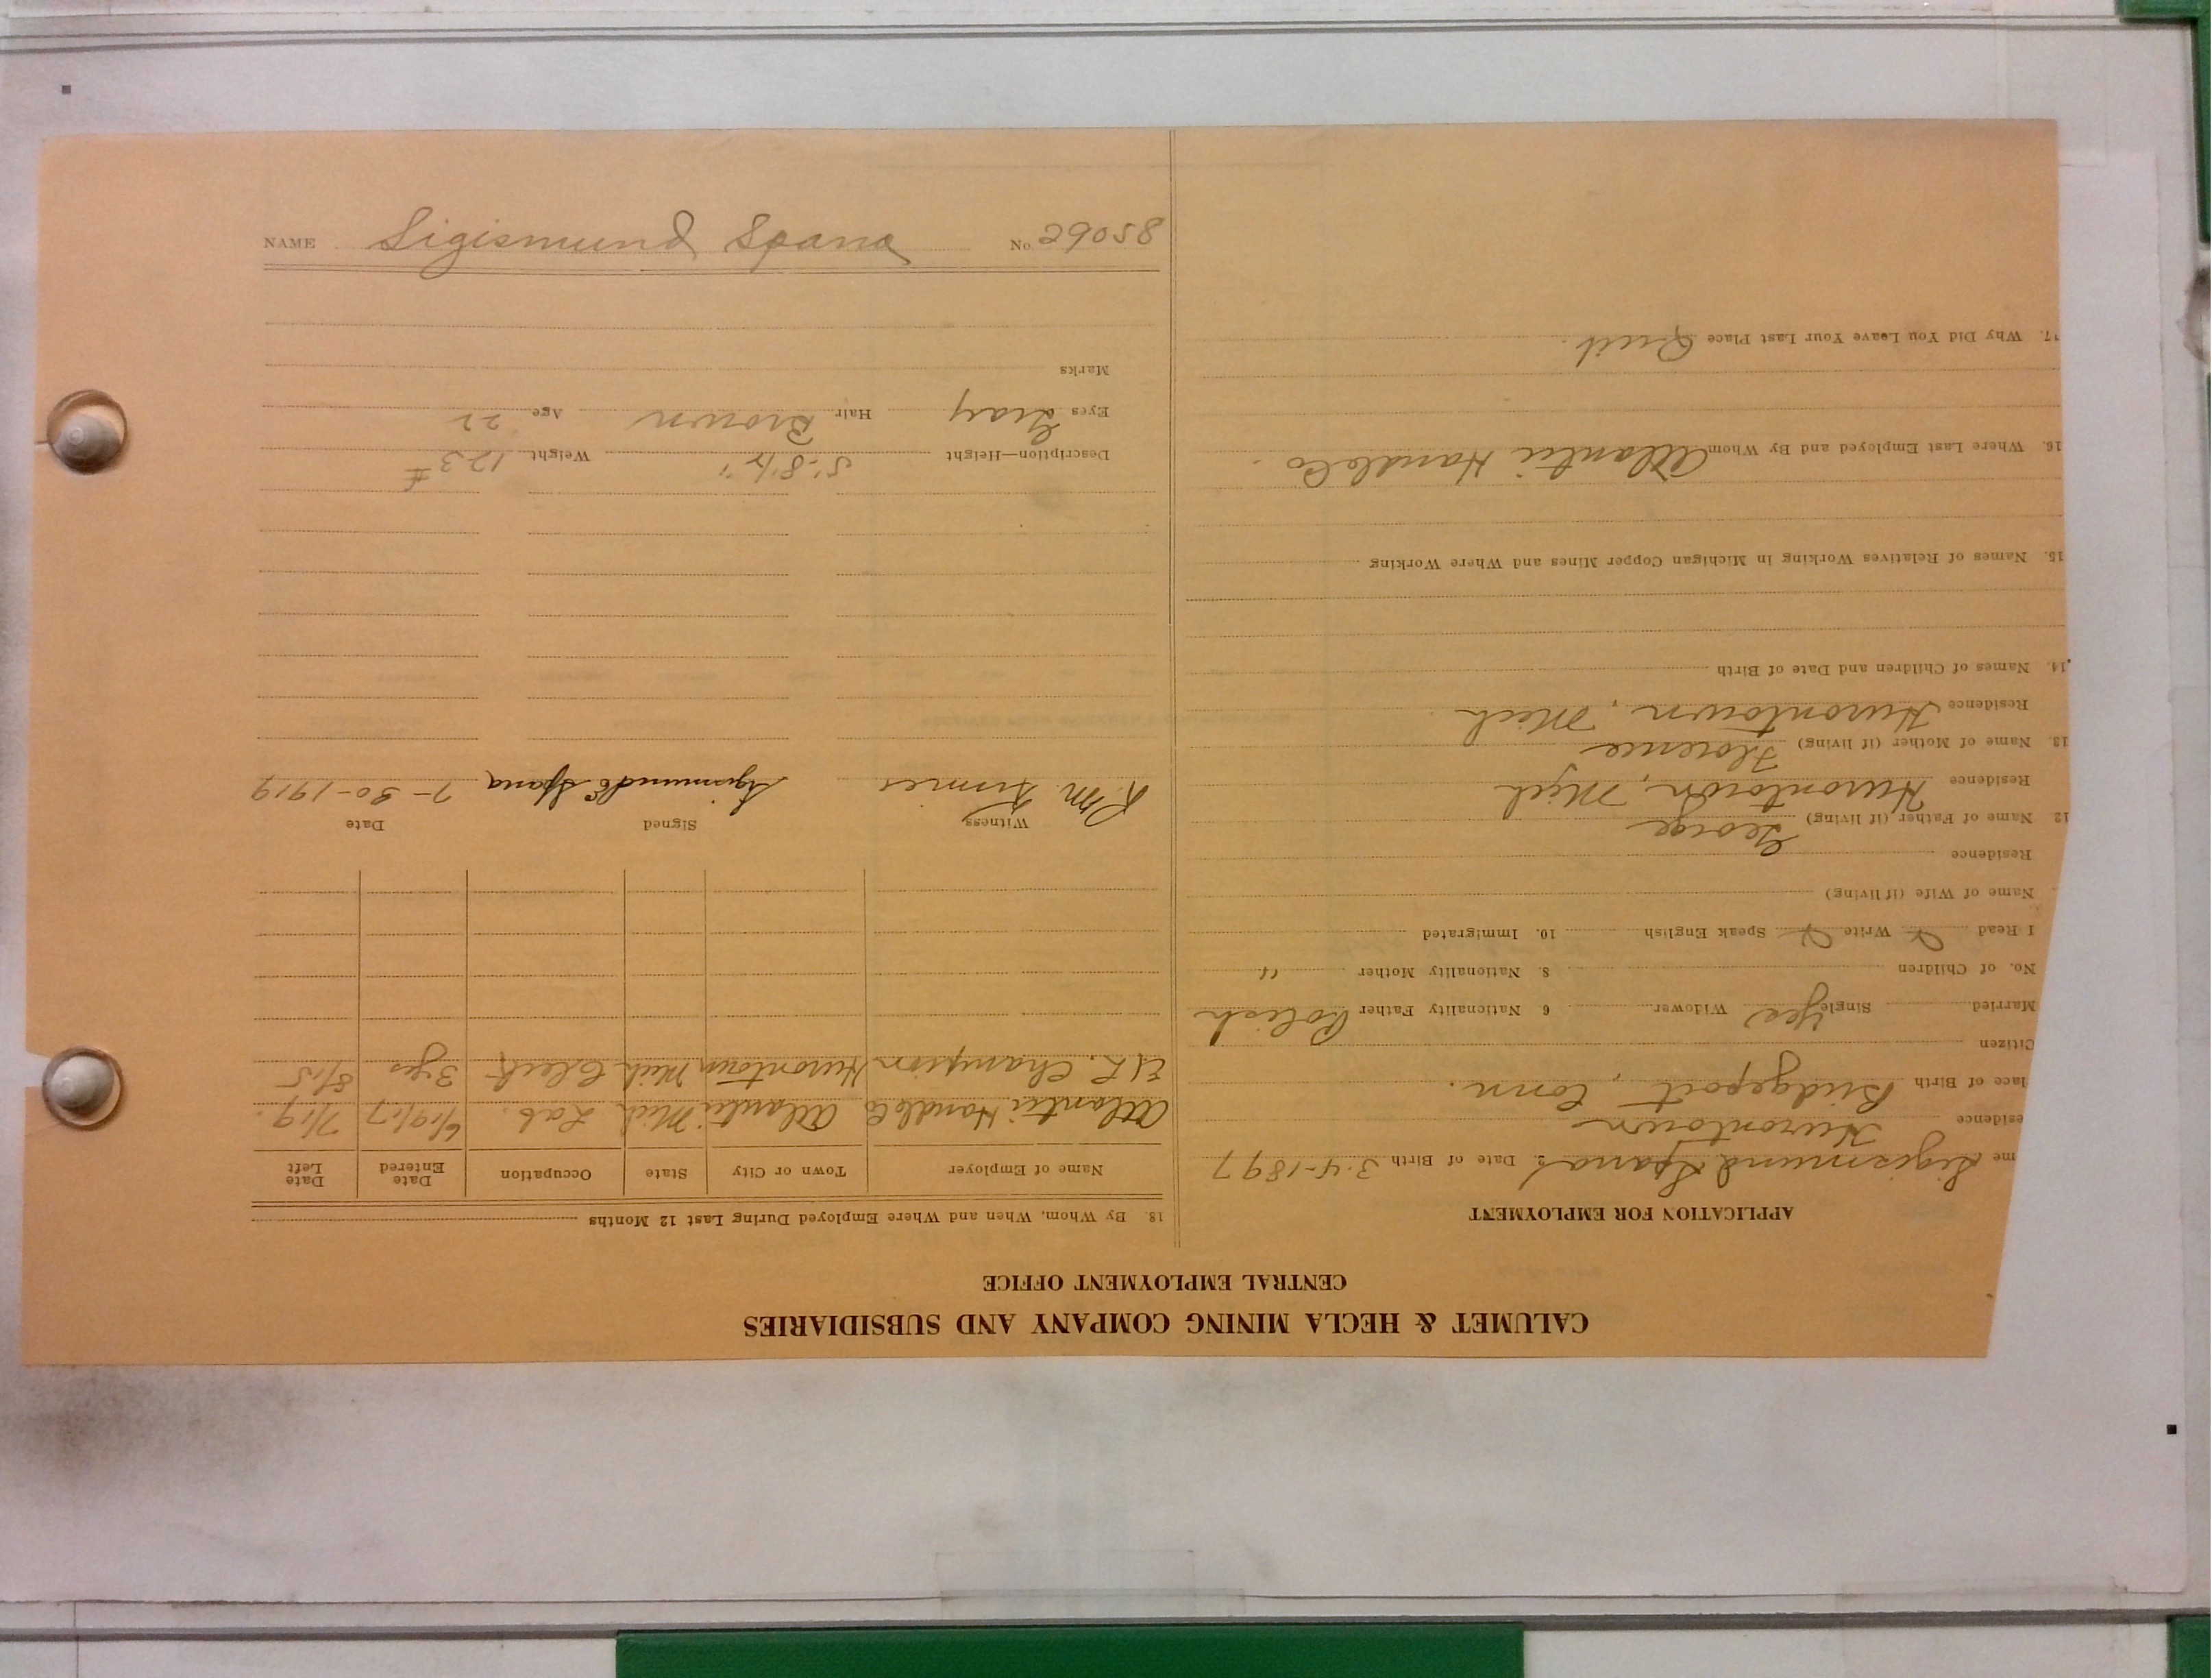 NAME Sigismund Spana No. 29058
CALUMET & HECLA MINING COMPANY AND SUBSIDIARIES
CENTRAL EMPLOYMENT OFFICE
APPLICATION FOR EMPLOYMENT
me Sigismund Spana 2. Date of Birth 3-4-1897
esidence Hurontown
lace of Birth Bridgeport, Conn.
Citizen
Married Single Yes Widower 6 Nationality Father Polish
No. of Children 8. Nationality Mother "
I Read Write Speak English 10. Immigrated
Name of Wife (if living)
Residence
12. Name of Father (if living) George
Residence Hurontown, Mich
13. Name of Mother (if living) Florence
Residence Hurontown, Mich
14. Names of Children and Date of Birth
15. Names of Relatives Working in Michigan Copper Mines and Where Working
16. Where Last Employed and By Whom Atlantic Handle Co.
17. Why Did You Leave Your Last Place Quit.
18. By Whom, When and Where Employed During Last 12 Months
Name of Employer Town or City State Occupation Date Entered Date Left
Atlantic Handle Co Atlantic Mich Lab. 6/19/17 7/19.
Champion Hurontown Mich Clerk 3 yrs 8/15
Witness Signed Date
R.M. Sigismund Spana 7-30-1919
Description—Height 5'-8 1/2" Weight 123#
Eyes Gray Hair Brown Age 22
Marks